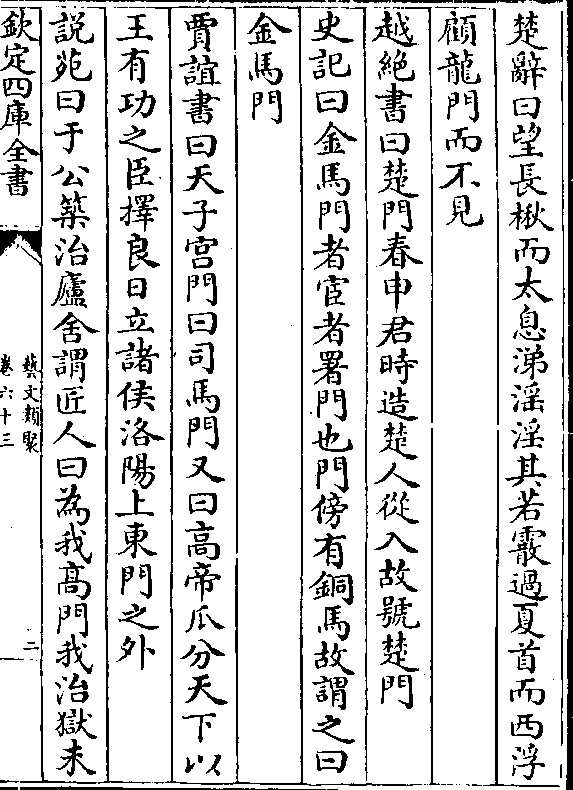 楚辭曰望長楸而太息涕淫淫其若霰過夏首而西浮
顧龍門而不見
越絶書曰楚門春申君時造楚人從入故號楚門
史記曰金馬門者宦者署門也門傍有銅馬故謂之曰
金馬門
賈誼書曰天子宫門曰司馬門又曰高帝瓜分天下以
王有功之臣擇良日立諸侯洛陽上東門之外
説苑曰于公築治廬舍謂匠人曰為我高門我治獄未
欽定四庫全書
藝文類聚
卷六十三
二